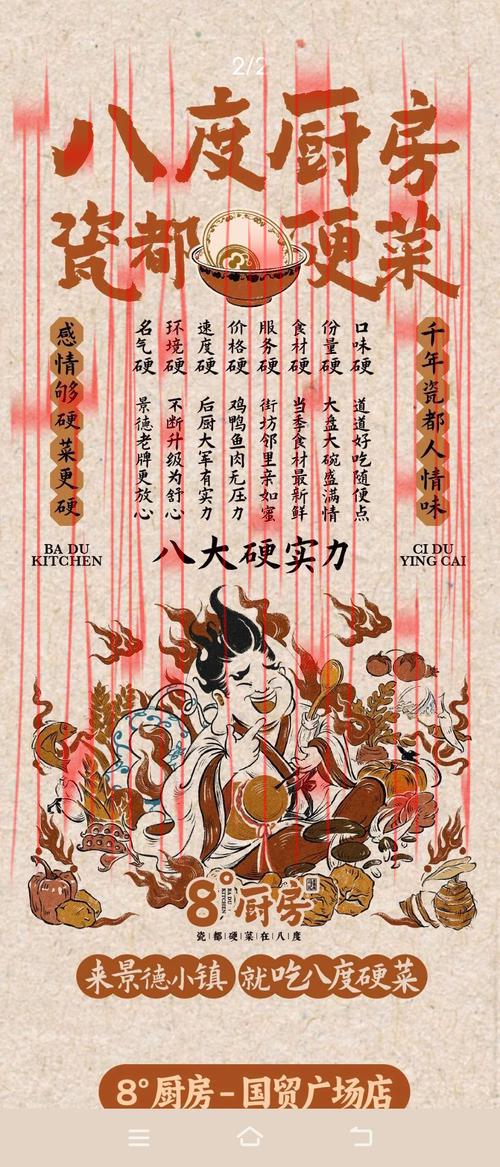 2/2
八度厨房
瓷都硬菜
千年瓷都人情味
口味硬 道道好吃随便点
份量硬 大盘大碗盛满情
食材硬 当季食材最新鲜
服务硬 街坊邻里亲如蜜
价格硬 鸡鸭鱼肉无压力
速度硬 后厨大军有实力
环境硬 不断升级为舒心
名气硬 景德老牌更放心
感情够硬菜更硬
BA DU
KITCHEN
八大硬实力
CI DU
YING CAI
8°厨房
BA DU
KITCHEN
瓷都硬菜在八度
来景德小镇 就吃八度硬菜
8°厨房-国贸广场店